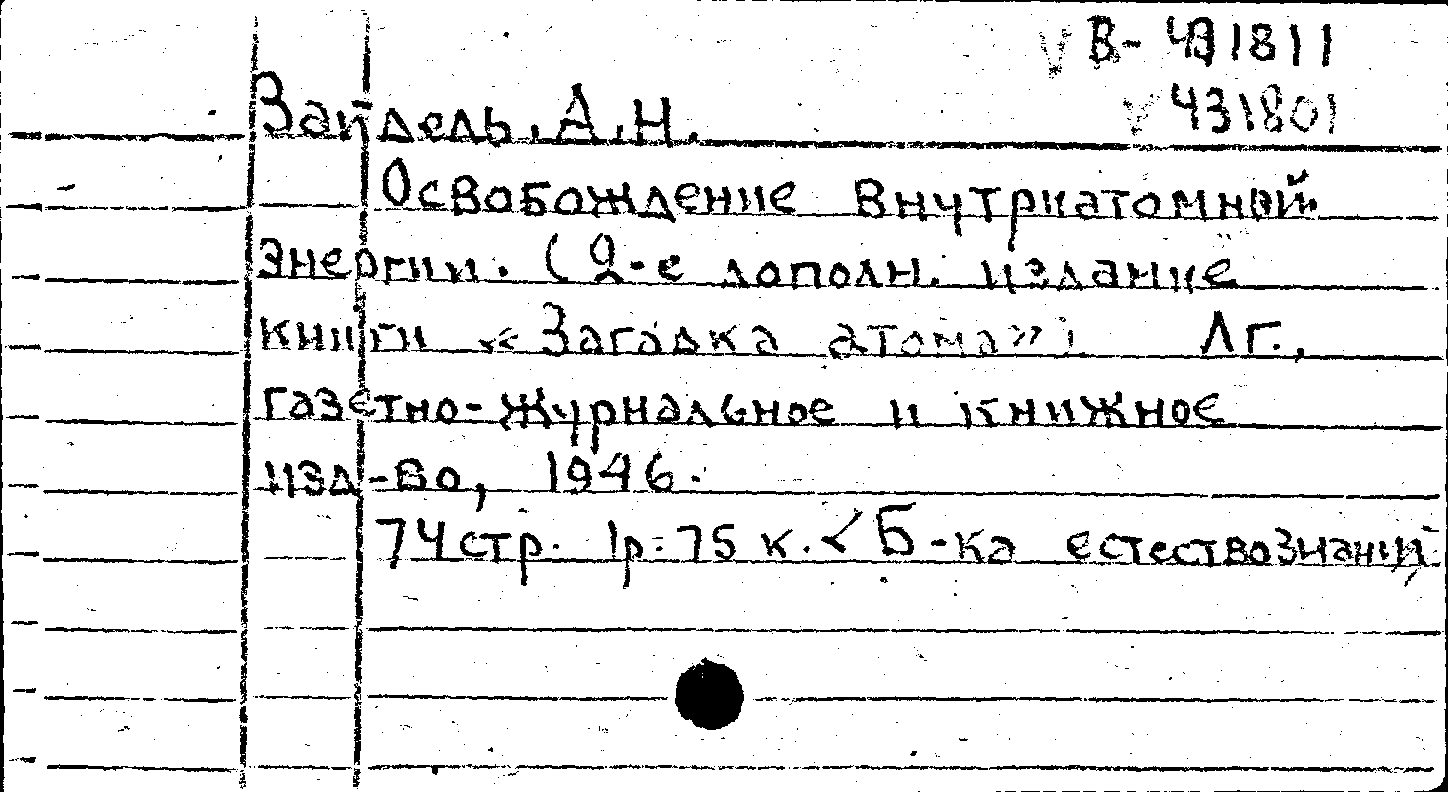 В-431811
431801
Зайдель, А.Н.
Освобождение внутриатомной
энергии. (2-е дополн. издание
книги «Загадка атома»). Лг.,
газетно-журнальное и книжное
изд-во, 1946.
74 стр. 1р. 75 к. < Б-ка естествознания